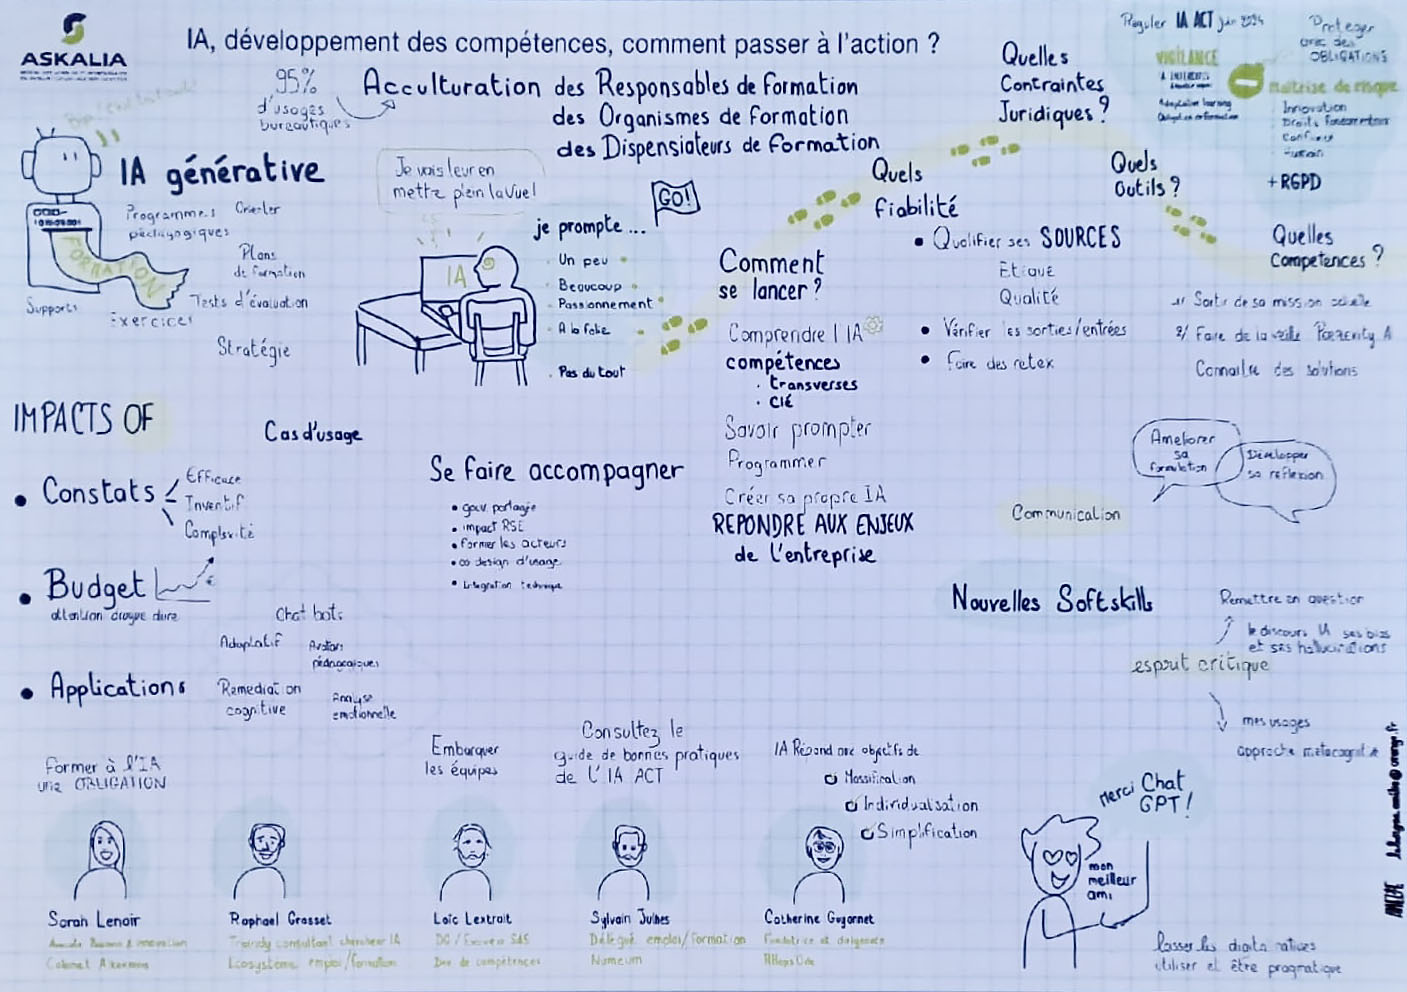 ASKALIA
IA, développement des compétences, comment passer à l'action ?
95%
d'usages
bureautiques
Acculturation des Responsables de Formation
des Organismes de Formation
des Dispensiateurs de Formation
IA générative
Programmes
pédagogiques
Orienter
Plans
de formation
Tests d'évaluation
Stratégie
Supports
FORMATION
Exercices
Je vais leur en
mettre plein la vue !
IA
GO!
je prompte ...
Un peu
Beaucoup
Passionnement
A la folie
Pas du tout
Comment
se lancer ?
Comprendre l'IA
compétences
transverses
clé
Savoir prompter
Programmer
Créer sa propre IA
REPONDRE AUX ENJEUX
de l'entreprise
Quels
fiabilité
Qualifier ses SOURCES
Qualité
Vérifier les sorties/entrées
Faire des retex
Quelles
Contraintes
Juridiques ?
Réguler IA ACT juin 2024
VIGILANCE
Adaptative learning
Proteger
avec des
OBLIGATIONS
maitrise de risque
Innovation
Droits fondamentaux
Humain
+ RGPD
Quels
Outils ?
Quelles
Competences ?
1/ Sortir de sa mission
2/ Faire de la veille
Connaitre des solutions
IMPACTS OF
Cas d'usage
Constats
Efficace
Inventif
Complexité
Budget
Applications
Chat bots
Adaptatif
Avatars
pédagogiques
Remediation
cognitive
Analyse
emotionnelle
Se faire accompagner
impact RSE
former les acteurs
co design d'usage
integration technique
Ameliorer
sa
formulation
Développer
sa reflexion
Communication
Nouvelles Softskills
Remettre en question
le discours IA ses biais
et ses hallucinations
esprit critique
mes usages
approche
Former à l'IA
une OBLIGATION
Embarquer
les équipes
Consultez le
guide de bonnes pratiques
de L'IA ACT
IA Répond aux objectifs de
Massification
Individualisation
Simplification
Sarah Lenoir
Cabinet
Raphael Grasset
consultant chercheur IA
Ecosystème emploi/formation
Loïc
DG /
Dev de compétences
Sylvain
Délégué emploi/formation
Numeum
Catherine
Fondatrice et dirigeante
Merci Chat
GPT !
mon
meilleur
ami
utiliser et être pragmatique